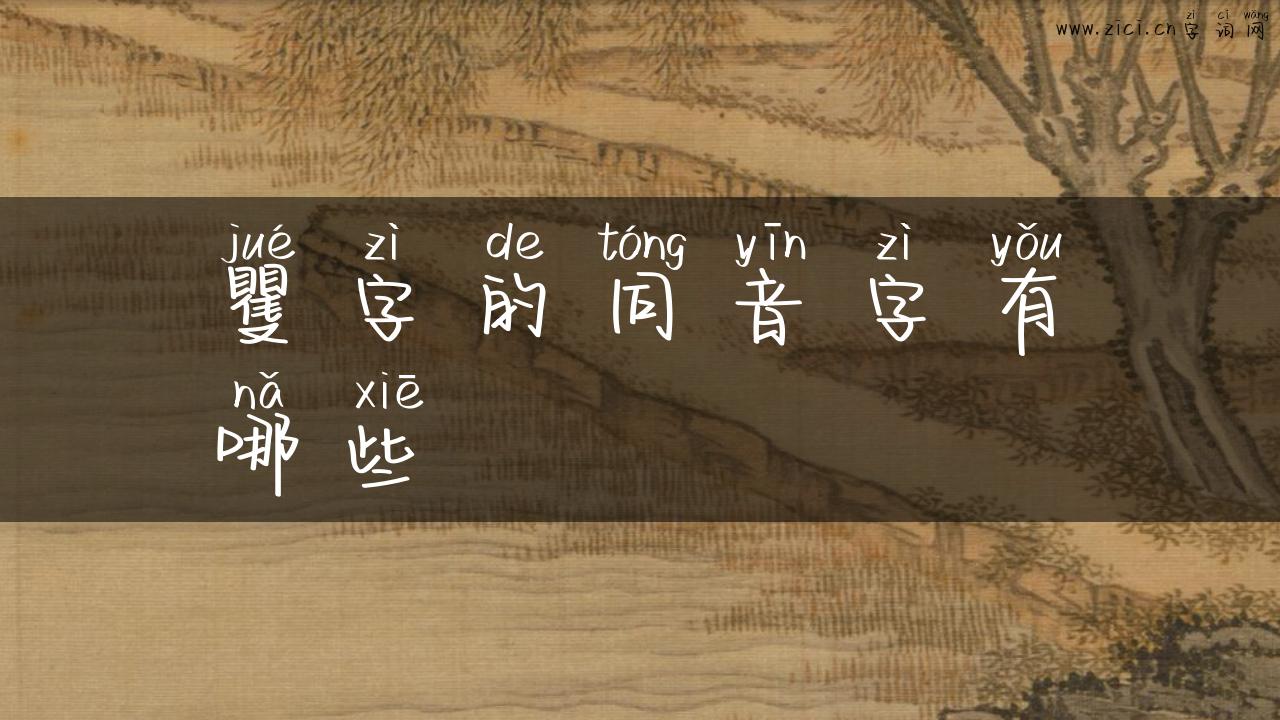 zì cí wǎng
www.zici.cn字词网
jué zì de tóng yīn zì yǒu
矍字的同音字有
nǎ xiē
哪些